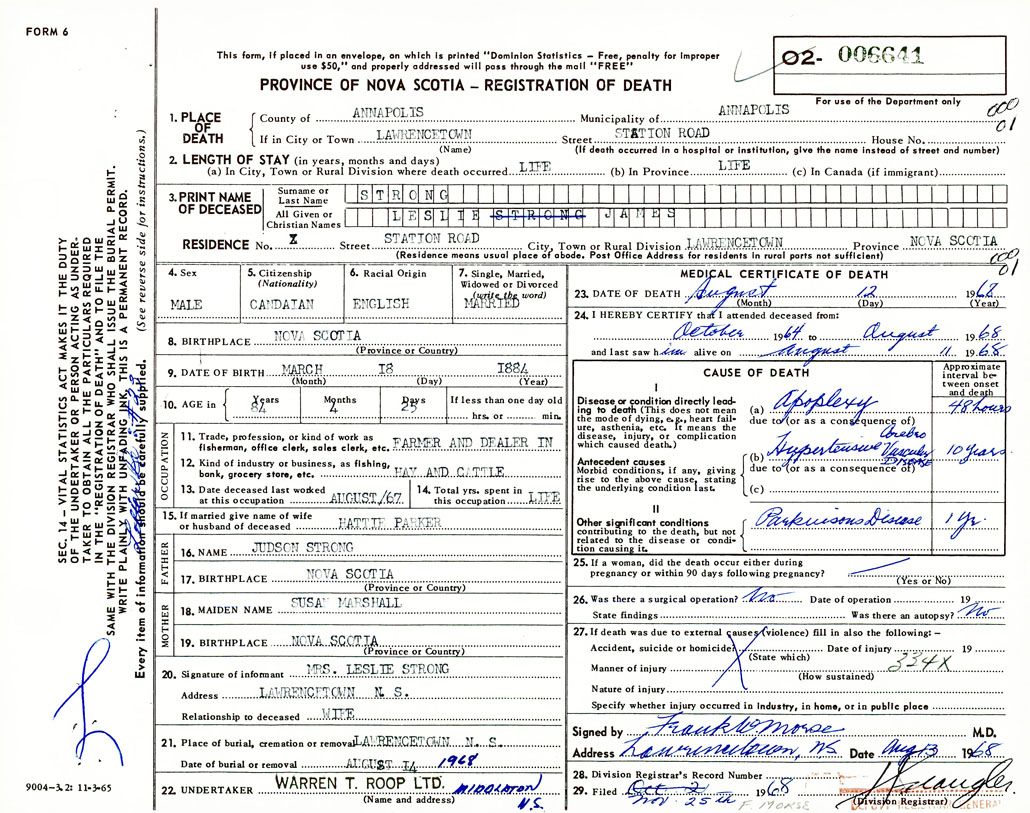 FORM 6
This form, if placed in an envelope, on which is printed "Dominion Statistics – Free, penalty for improper
use $50," and properly addressed will pass through the mail "FREE"
PROVINCE OF NOVA SCOTIA – REGISTRATION OF DEATH
02- 006641
For use of the Department only
000
01
1. PLACE OF DEATH
County of ANNAPOLIS Municipality of ANNAPOLIS
If in City or Town LAWRENCETOWN Street STATION ROAD House No.
(Name) (If death occurred in a hospital or institution, give the name instead of street and number)
2. LENGTH OF STAY (in years, months and days)
(a) In City, Town or Rural Division where death occurred LIFE (b) In Province LIFE (c) In Canada (if immigrant)
3. PRINT NAME OF DECEASED
Surname or Last Name STRONG
All Given or Christian Names LESLIE STRONG JAMES
RESIDENCE No. X Street STATION ROAD City, Town or Rural Division LAWRENCETOWN Province NOVA SCOTIA
(Residence means usual place of abode. Post Office Address for residents in rural parts not sufficient)
000
01
4. Sex MALE
5. Citizenship (Nationality) CANDAIAN
6. Racial Origin ENGLISH
7. Single, Married, Widowed or Divorced (write the word) MARRIED
8. BIRTHPLACE NOVA SCOTIA
(Province or Country)
9. DATE OF BIRTH MARCH 18 1884
(Month) (Day) (Year)
10. AGE in Years 84 Months 4 Days 25 If less than one day old
hrs. or min.
OCCUPATION
11. Trade, profession, or kind of work as
fisherman, office clerk, sales clerk, etc. FARMER AND DEALER IN
12. Kind of industry or business, as fishing,
bank, grocery store, etc. HAY AND CATTLE
13. Date deceased last worked
at this occupation AUGUST/67
14. Total yrs. spent in
this occupation LIFE
15. If married give name of wife
or husband of deceased HATTIE PARKER
FATHER
16. NAME JUDSON STRONG
17. BIRTHPLACE NOVA SCOTIA
(Province or Country)
MOTHER
18. MAIDEN NAME SUSAN MARSHALL
19. BIRTHPLACE NOVA SCOTIA
(Province or Country)
20. Signature of informant MRS. LESLIE STRONG
Address LAWRENCETOWN N. S.
Relationship to deceased WIFE
21. Place of burial, cremation or removal LAWRENCETOWN N. S.
Date of burial or removal AUGUST 14 1968
22. UNDERTAKER WARREN T. ROOP LTD. MIDDLETON
(Name and address) N.S.
MEDICAL CERTIFICATE OF DEATH
23. DATE OF DEATH August 12 1968
(Month) (Day) (Year)
24. I HEREBY CERTIFY that I attended deceased from:
October 1964 to August 1968
and last saw him alive on August 11 1968
CAUSE OF DEATH
Approximate interval between onset and death
I
Disease or condition directly leading to death (This does not mean the mode of dying, e.g., heart failure, asthenia, etc. It means the disease, injury, or complication which caused death.)
(a) Apoplexy 48 hours
due to (or as a consequence of)
Antecedent causes
Morbid conditions, if any, giving rise to the above cause, stating the underlying condition last.
(b) Hypertensive Cerebro Vascular DISEASE 10 years
due to (or as a consequence of)
(c)
II
Other significant conditions
contributing to the death, but not related to the disease or condition causing it.
Parkinsons Disease 1 yr.
25. If a woman, did the death occur either during
pregnancy or within 90 days following pregnancy?
(Yes or No)
26. Was there a surgical operation? No Date of operation 19
State findings Was there an autopsy? No
27. If death was due to external causes (violence) fill in also the following: –
Accident, suicide or homicide? Date of injury 19
(State which) 334X
Manner of injury
(How sustained)
Nature of injury
Specify whether injury occurred in Industry, in home, or in public place
Signed by Frank W Morse M.D.
Address Lawrencetown, NS Date Aug 13 1968
28. Division Registrar's Record Number
29. Filed Oct. 2 1968
Nov. 25th F. MORSE
(Division Registrar)
SEC. 14 – VITAL STATISTICS ACT MAKES IT THE DUTY
OF THE UNDERTAKER OR PERSON ACTING AS UNDER-
TAKER TO OBTAIN ALL THE PARTICULARS REQUIRED
IN THE "REGISTRATION OF DEATH" AND TO FILE THE
SAME WITH THE DIVISION REGISTRAR WHO SHALL ISSUE THE BURIAL PERMIT.
WRITE PLAINLY WITH UNFADING INK, THIS IS A PERMANENT RECORD.
Every item of information should be carefully supplied. (See reverse side for instructions.)
9004-3.2: 11-3-65